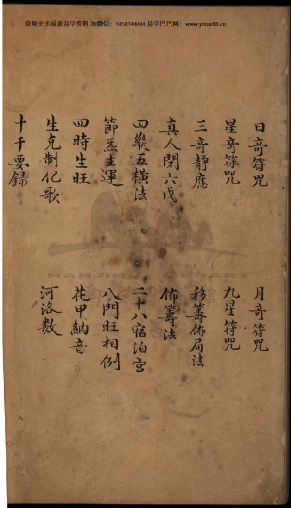 获取更多最新易学资料 加微信: 3458344044 易学巴巴网: www.yixue88.cn
日奇符咒 月奇符咒
星奇符咒 九星符咒
三奇靜應 移籌佈局法
真人閉六戊 佈籌法
四縱五橫法 二十八宿泊宮
節炁主運 八門旺相例
四時生旺 花甲納音
生克制化歌 河洛数
十干要録